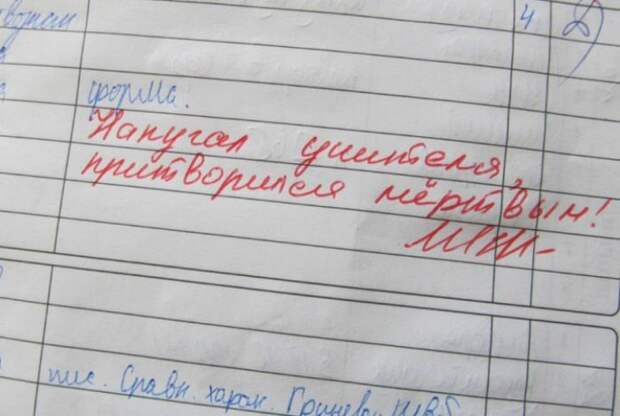 4
форма!
Напугал учителя,
притворился мёртвым!
пис. Сравн. харак. Гринева и Швб